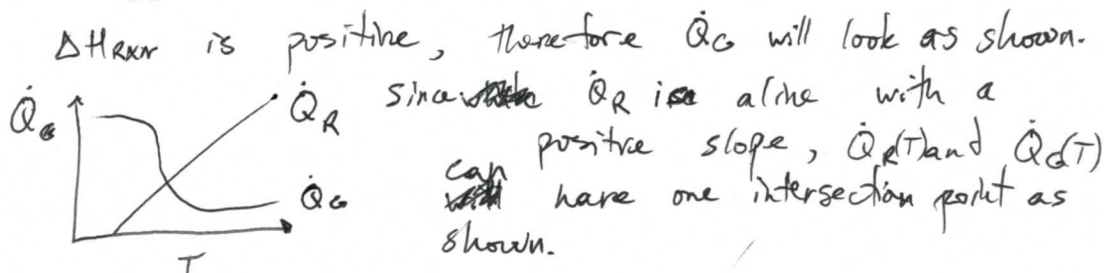 ΔH_RXN is positive, therefore Q̇_G will look as shown.
Q̇_G
Q̇_R
Q̇_G
T
since Q̇_R is a line with a
positive slope, Q̇_R(T) and Q̇_G(T)
can have one intersection point as
shown.